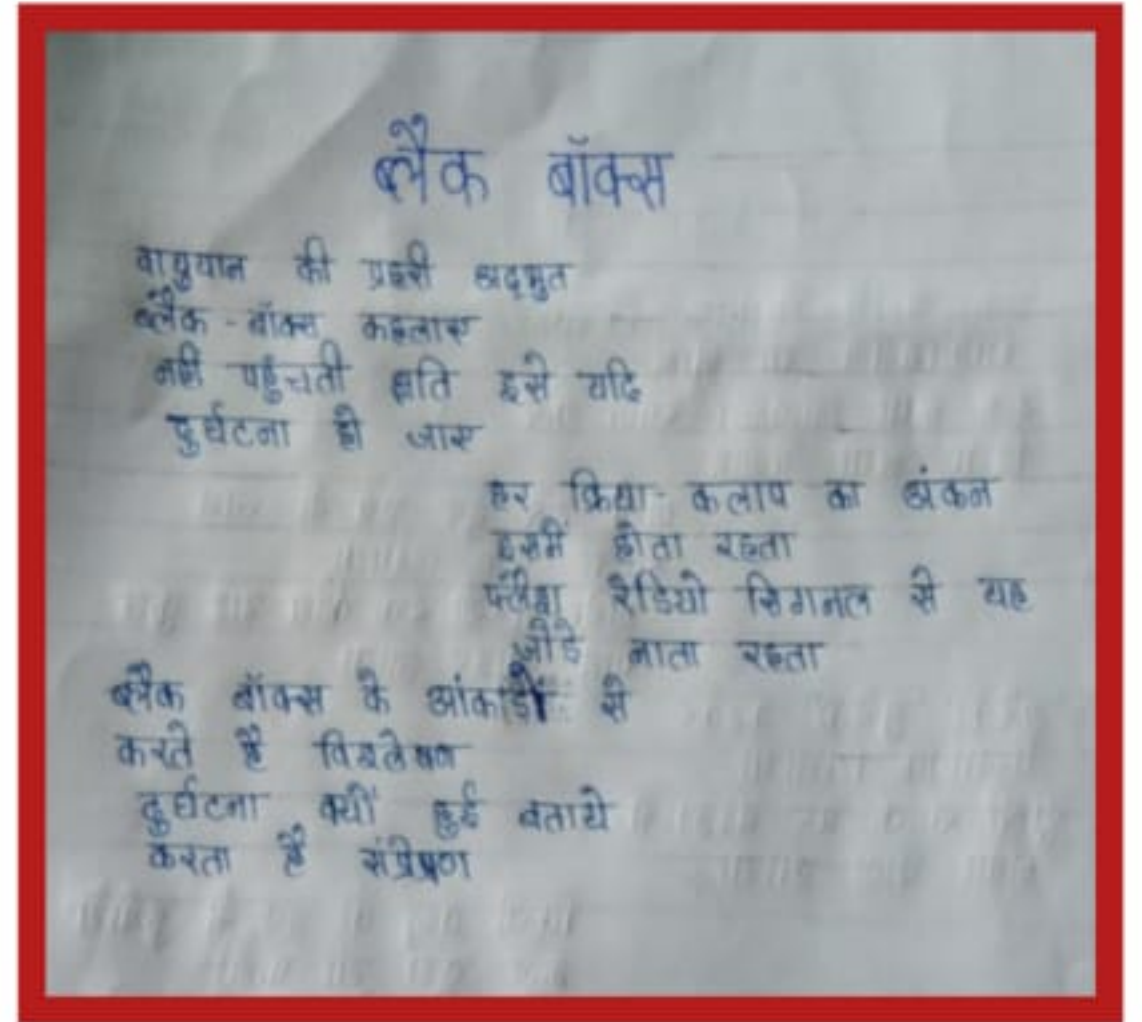 ब्लैक बॉक्स
वायुयान की प्रहरी अद्भुत
ब्लैक-बॉक्स कहलाए
नही पहुँचती क्षति इसे यदि
दुर्घटना हो जाए
हर क्रिया-कलाप का अंकन
इसमें होता रहता
फ्लैश रेडियो सिगनल से यह
जोड़े नाता रहता
ब्लैक बॉक्स के आंकाडों से
करते है विश्लेषण
दुर्घटना क्यों हुई बताये
करता है संप्रेषण